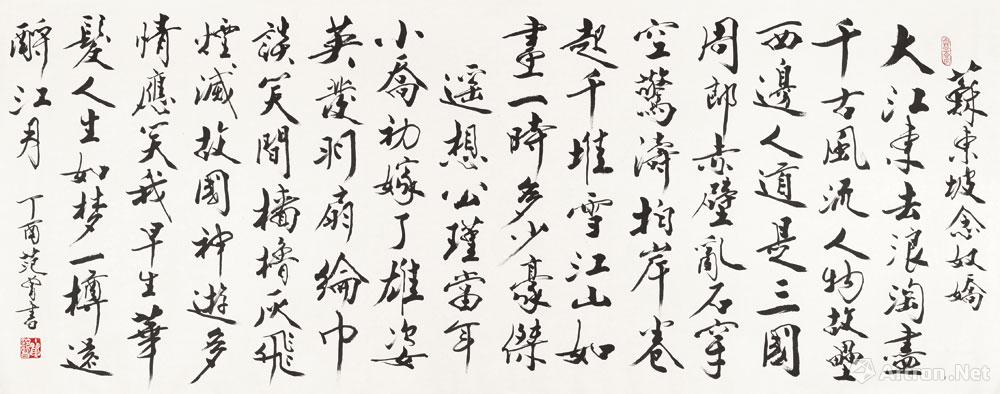 蘇東坡念奴嬌
大江東去浪淘盡
千古風流人物故壘
西邊人道是三國
周郎赤壁亂石穿
空驚濤拍岸卷
起千堆雪江山如
畫一時多少豪傑
遥想公瑾當年
小喬初嫁了雄姿
英發羽扇綸巾
談笑間檣櫓灰飛
煙滅故國神遊多
情應笑我早生華
髮人生如梦一樽還
酹江月
丁
范曾書
Artron.Net